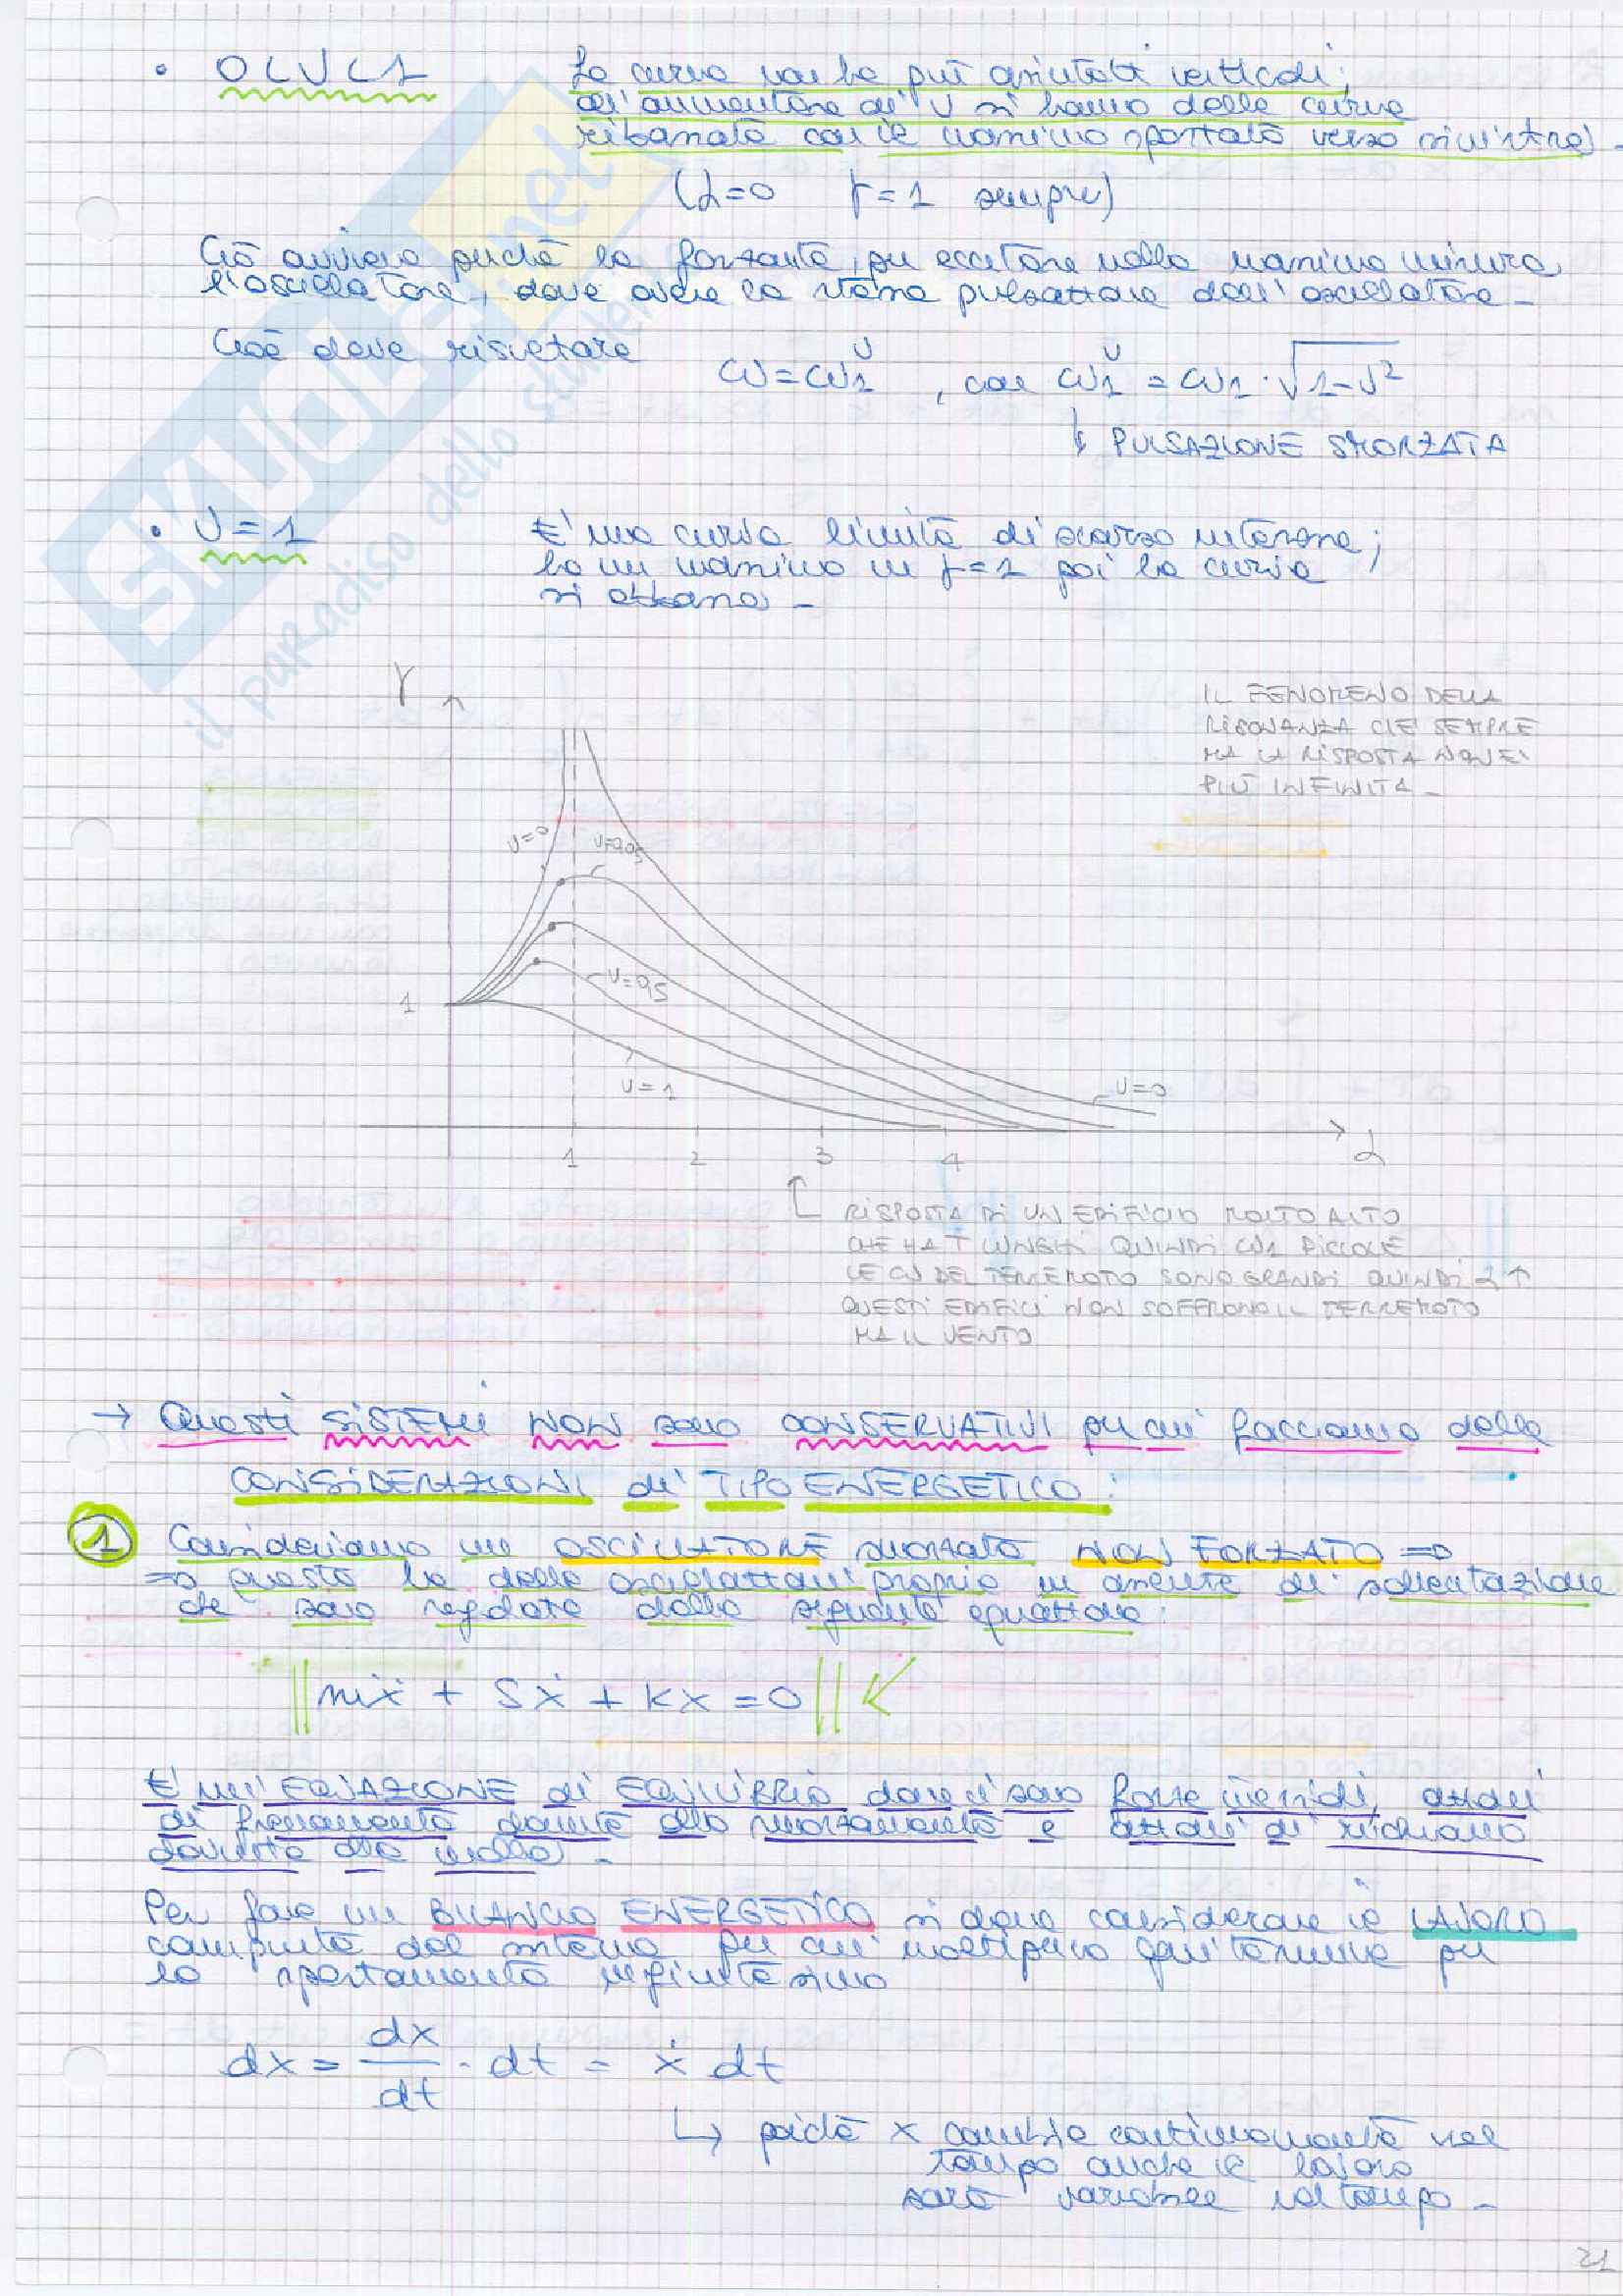 • 0<ν<1 La curva non ha più asintoti verticali;
all'aumentare di ν si hanno delle curve
ribassate con il massimo spostato verso sinistra.
(α=0 r=1 sempre)
Ciò avviene perchè la forzante, per eccitare nella massima misura
l'oscillatore, deve avere la stessa pulsazione dell'oscillatore -
Cioè deve rispettare ω=ω₁^ν , con ω₁^ν = ω₁·√1-ν²
↳ PULSAZIONE SMORZATA
• ν=1 E' una curva limite di scarso interesse;
ha un massimo in r=1 poi la curva
si abbassa -
r
IL FENOMENO DELLA
RISONANZA C'E' SEMPRE
MA LA RISPOSTA NON E'
PIÙ INFINITA -
ν=0 ν=0,05
1 ν=0,5
ν=1 ν=0
1 2 3 4 α
RISPOSTA DI UN EDIFICIO MOLTO ALTO
CHE HA T LUNGHI QUINDI ω1 PICCOLE
LE ω DEL TERREMOTO SONO GRANDI QUINDI α↑
QUESTI EDIFICI NON SOFFRONO IL TERREMOTO
MA IL VENTO
→ Questi SISTEMI NON sono CONSERVATIVI per cui facciamo delle
CONSIDERAZIONI di TIPO ENERGETICO:
1 Consideriamo un OSCILLATORE smorzato NON FORZATO =>
=> questo ha delle oscillazioni proprie in assenza di sollecitazione
che sono regolate dalla seguente equazione:
‖ mẍ + Sẋ + Kx = 0 ‖ ←
E' un'EQUAZIONE di EQUILIBRIO dove ci sono forze inerziali, azioni
di frenamento dovute allo smorzamento e azioni di richiamo
dovute alla molla -
Per fare un BILANCIO ENERGETICO si deve considerare il LAVORO
compiuto dal sistema per cui moltiplico ogni termine per
lo spostamento infinitesimo
dx = dx/dt · dt = ẋ dt
↳ poichè x cambia continuamente nel
tempo anche il lavoro
sarà variabile nel tempo -
21
SKUOLA.net
il paradiso dello studente